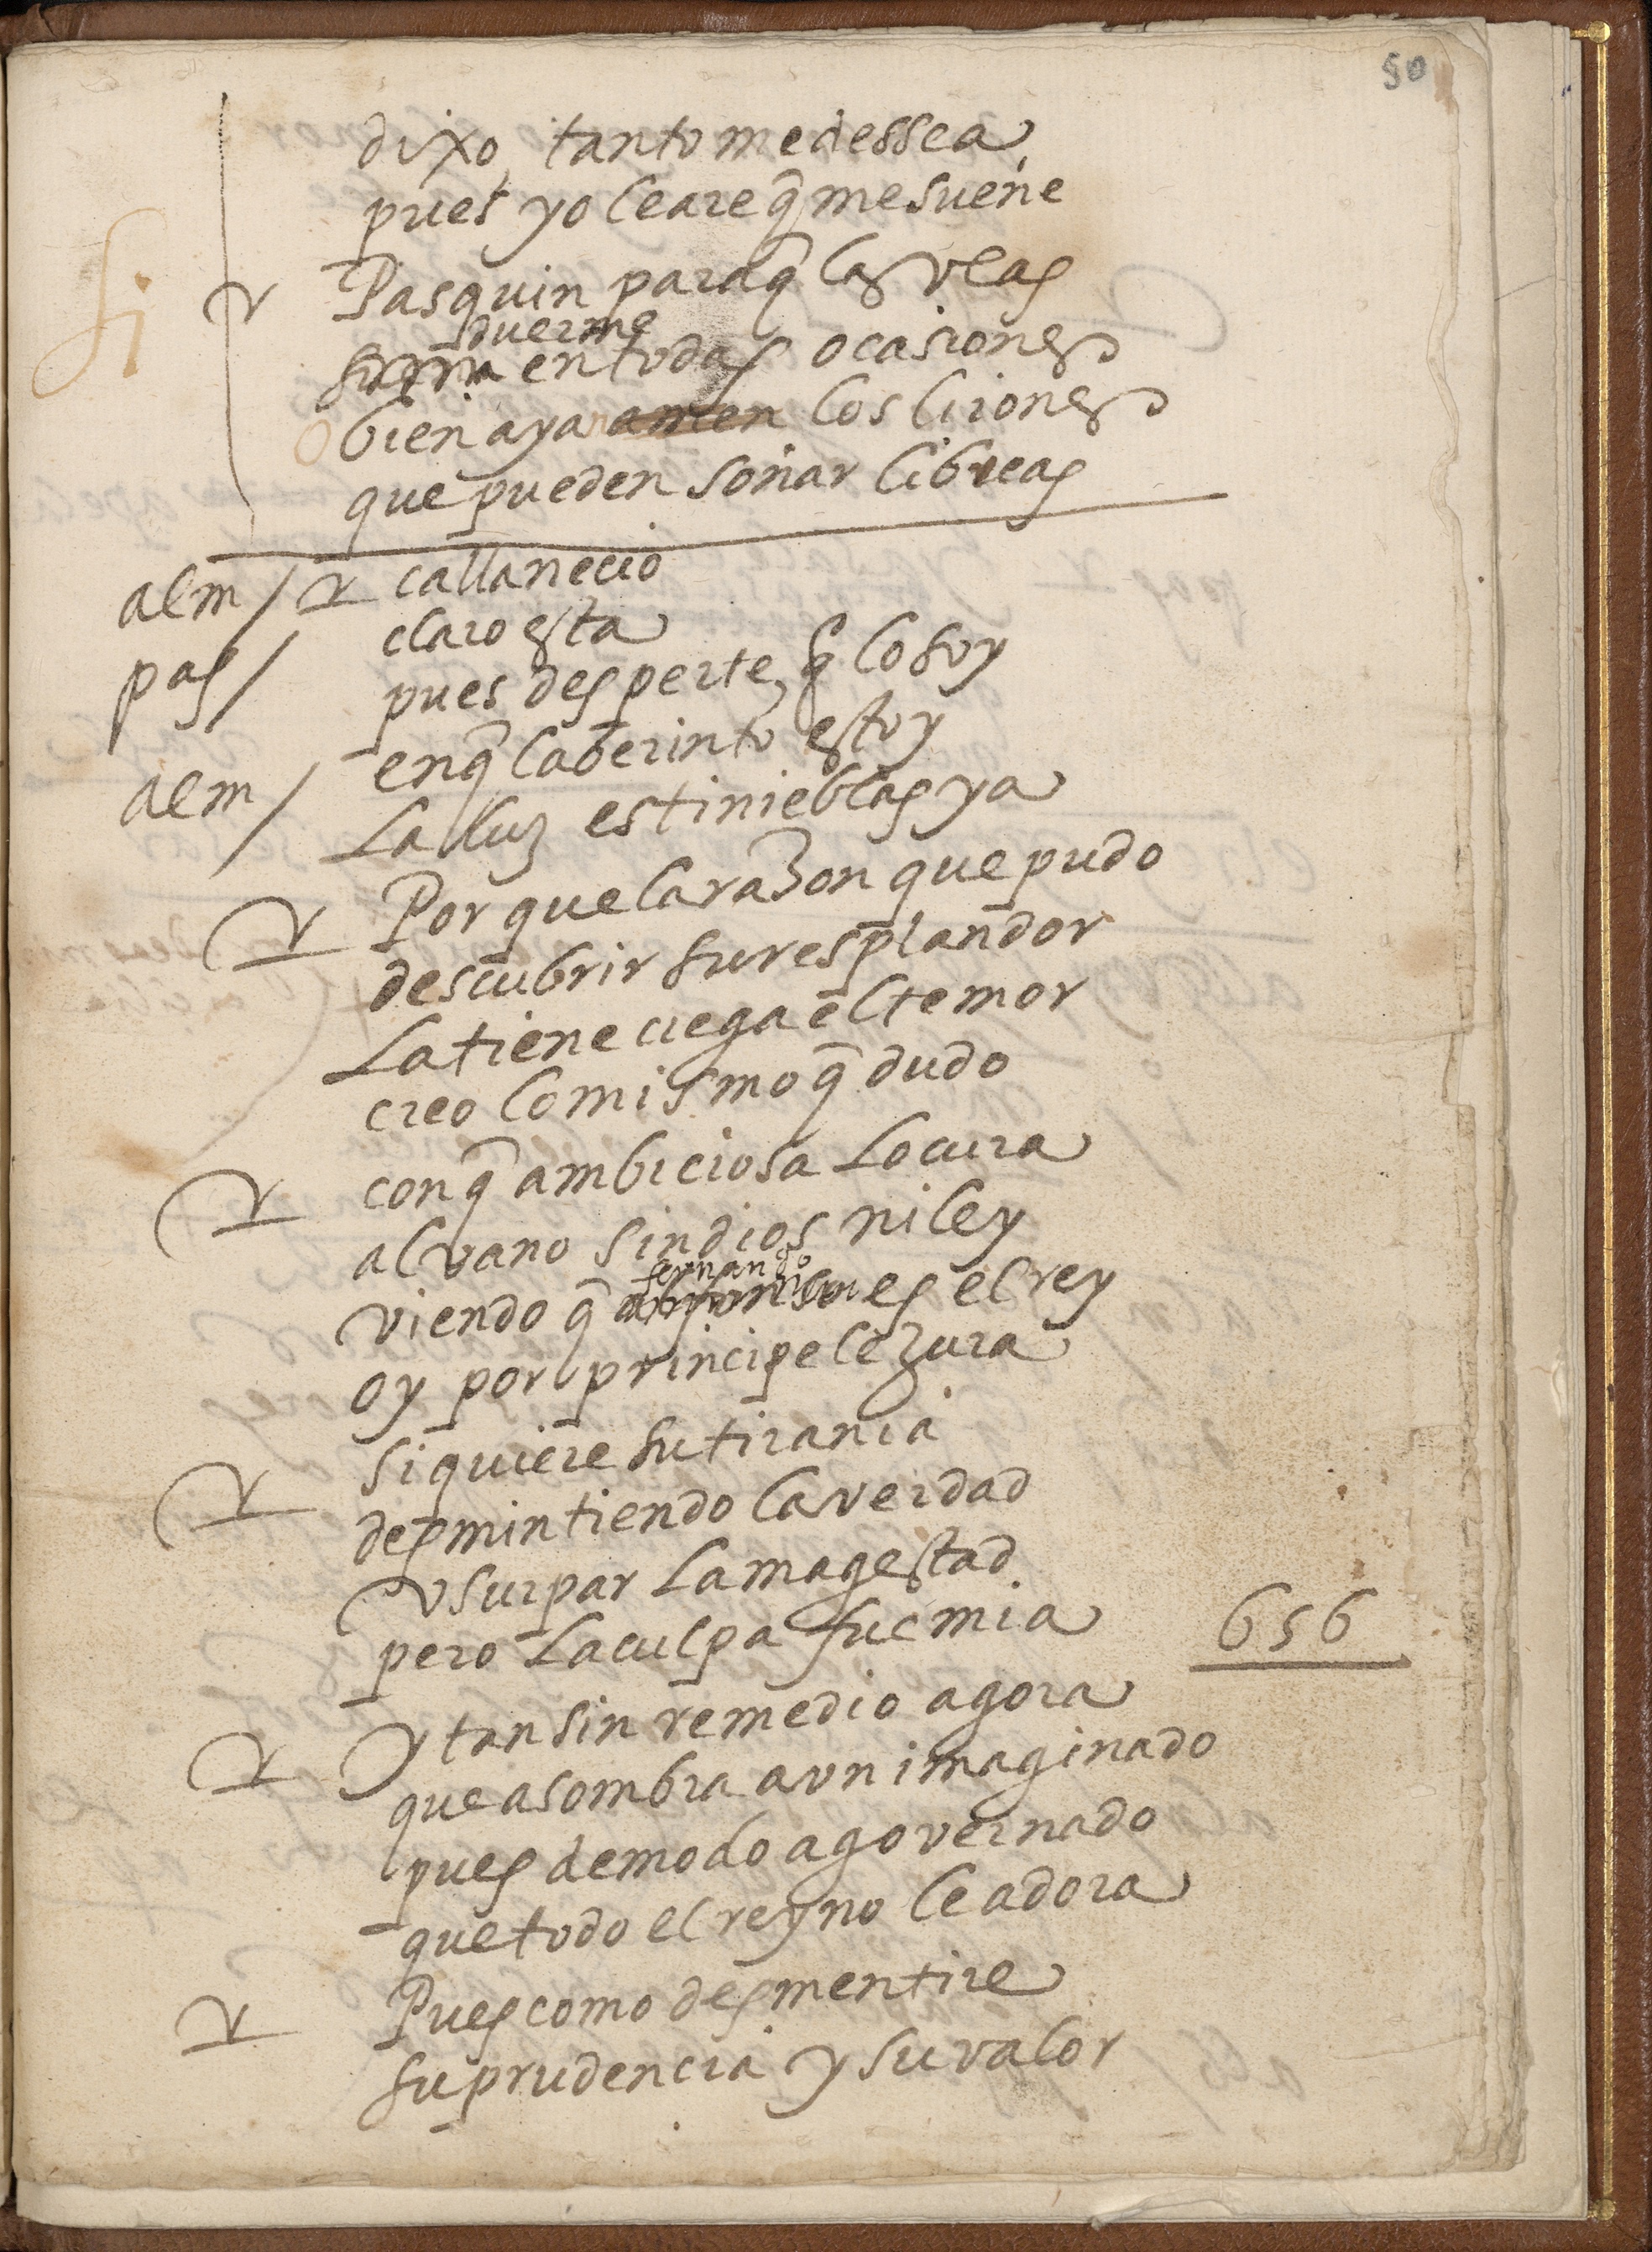 50
dixo, tanto me dessea
pues yo le are q̃ me sueñe
si
Pasquin para q̃ las veas
duerme
en todas ocasiones
O bien ayan amen los lirones
que pueden soñar libreas
alm / calla necio
pas / claro esta
pues desperte, q̃ lo soy
alm / en q̃ laberinto estoy
La luz es tinieblas ya
Por que la razon que pudo
descubrir su resplandor
La tiene ciega el temor
creo lo mismo q̃ dudo
con q̃ ambiciosa Locura
alvano sin dios ni ley
fernando
viendo q̃ es el rey
oy por principe le jura
si quiere su tirania
desmintiendo la verdad
vsurpar La magestad
pero La culpa fue mia
656
y tan sin remedio agora
que asombra aun imaginado
pues de modo a governado
que todo el reyno le adora
Pues como desmentire
su prudencia y su valor